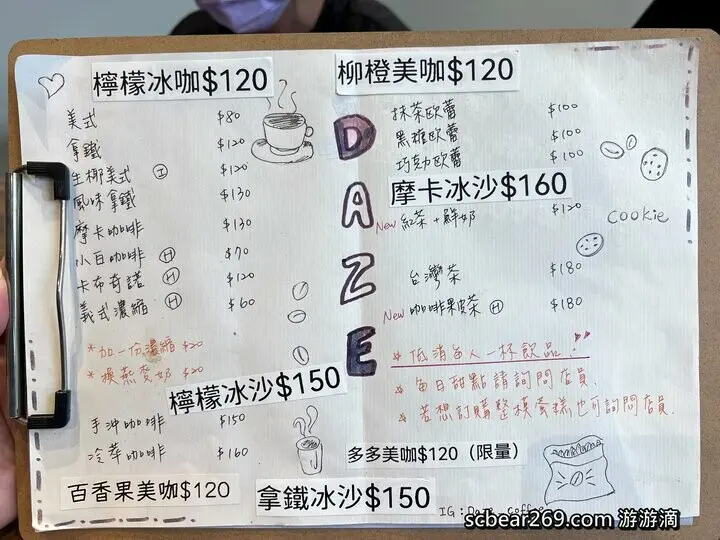 檸檬冰咖$120
美式 $80
拿鐵 $120
生椰美式 Ⓘ $120
風味拿鐵 $130
摩卡咖啡 $130
小白咖啡 Ⓗ $70
卡布奇諾 Ⓗ $120
義式濃縮 Ⓗ $60
*加一份濃縮 $20
*換燕麥奶 $20
檸檬冰沙$150
手沖咖啡 $150
冷萃咖啡 $160
百香果美咖$120
拿鐵冰沙$150
DAZE
柳橙美咖$120
抹茶歐蕾 $100
黑糖歐蕾 $100
巧克歐蕾 $100
摩卡冰沙$160
New 紅茶+鮮奶 $120
cookie
台灣茶 $180
New 咖啡果皮茶 Ⓗ $180
*低消每人一杯飲品!
*每日甜點請詢問店員.
*若想訂購整模蛋糕也可詢問店員.
多多美咖$120(限量)
IG:
scbear269.com 游游滴